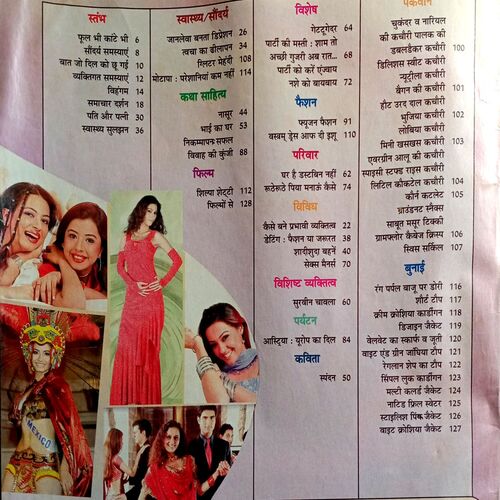 स्तंभ
फूल भी कांटे भी 6
सौंदर्य समस्याएं 8
बात जो दिल को छू गई 10
व्यक्तिगत समस्याएं 12
विहंगम 14
समाचार दर्शन 18
पति और पत्नी 30
स्वास्थ्य सुलझन 36
स्वास्थ्य/सौंदर्य
जानलेवा बनता डिप्रेशन 26
त्वचा का ढीलापन 34
ग्लिटर मेहंदी 108
मोटापा : परेशानियां कम नहीं 114
कथा साहित्य
नासूर 44
भाई का घर 53
निकम्मापन सफल
विवाह की कुंजी 88
फिल्म
शिल्पा शेट्टी 112
फिल्मों से 128
विशेष
गेटटूगेदर 64
पार्टी की मस्ती : शाम तो
अच्छी गुजरी अब रात... 68
पार्टी को करें एंज्वाय
नशे को बायबाय 72
फैशन
फ्यूजन फैशन 91
वस्त्रम् ड्रेस आफ दी इशू 110
परिवार
घर है डस्टबिन नहीं 62
रूठेरूठे पिया मनाऊं कैसे 74
विविध
कैसे बने प्रभावी व्यक्तित्व 22
डेटिंग : फैशन या जरूरत 38
शादीशुदा बहनें 40
सेक्स मैनर्स 70
विशिष्ट व्यक्तित्व
सुरवीन चावला 60
पर्यटन
आस्ट्रिया : यूरोप का दिल 84
कविता
स्पंदन 50
पकवान
चुकंदर व नारियल
की कचौरी पालक की
डबलडैकर कचौरी 100
डिलिशस स्वीट कचौरी
न्यूट्रीला कचौरी
बैंगन की कचौरी 101
हौट उरद दाल कचौरी
भुजिया कचौरी 102
लोबिया कचौरी
मिनी खसखस कचौरी 103
एवरग्रीन आलू की कचौरी
स्पाइसी स्टफ्ड राइस कचौरी
लिटिल कौकटेल कचौरी 104
कौर्न कटलेट 105
ग्राउंडनट स्नैक्स
साबूत मसूर टिक्की
ग्रामफ्लोर कैबेज क्रिस्प 106
स्विस सर्किल 107
बुनाई
रंग पर्पल बाजू पर डोरी 116
शौर्ट टौप 117
क्रीम क्रोशिया कार्डीगन 118
डिजाइन जैकेट 119
वेलवेट का स्कार्फ व जूती 120
वाइट एंड ग्रीन जांघिया टौप 121
रेगलान शेप का टौप 122
सिंपल लुक कार्डीगन 123
मल्टी कलर्ड जैकेट 124
नाटिड फ्रिल स्वेटर 125
स्टाइलिश पिंक जैकेट 126
वाइट क्रोशिया जैकेट 127
MEXICO